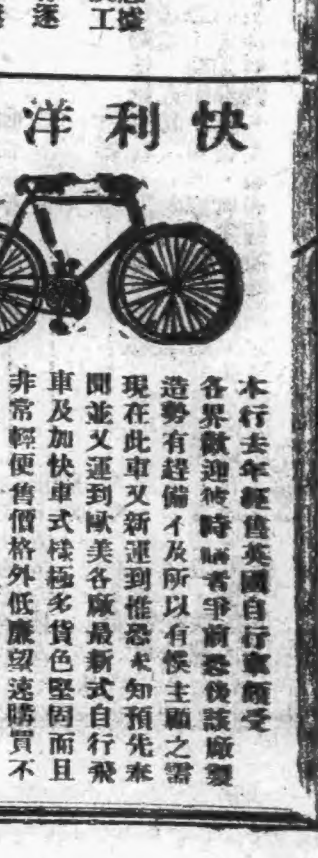 快利洋
本行去年經售英國自行車頗受
各界歡迎彼時購者爭前恐後該廠製
造勢有趕備不及所以有悞主顧之需
現在此車又新運到惟恐未知預先奉
聞並又運到歐美各廠最新式自行飛
車及加快車式樣極多貨色堅固而且
非常輕便售價格外低廉望速購買不